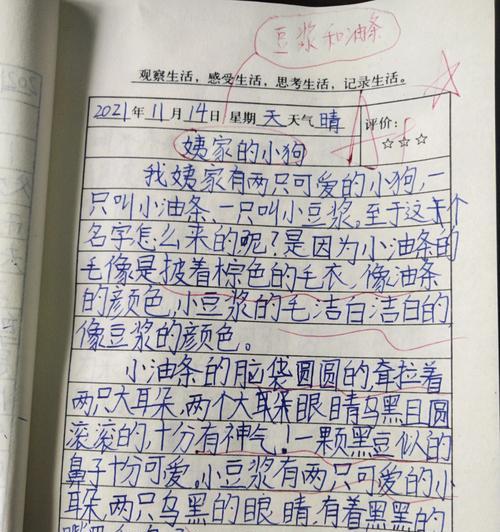 豆浆和油条
观察生活，感受生活，思考生活，记录生活。
2021年11月14日 星期天 天气晴 评价：
A+
☆☆☆
姨家的小狗
我姨家有两只可爱的小狗，一
只叫小油条、一只叫小豆浆，至于这个
名字怎么来的呢？是因为小油条的
毛像是披着棕色的毛衣，像油条
的颜色，小豆浆的毛洁白洁白的
像豆浆的颜色。
小油条的脑袋圆圆的，耷拉着
两只大耳朵，两个大耳朵眼睛乌黑且圆
滚滚的，十分有神气！一颗黑豆似的
鼻子十份可爱，小豆浆有两只可爱的小
耳朵两只乌黑的眼睛有着黑黑的
2021